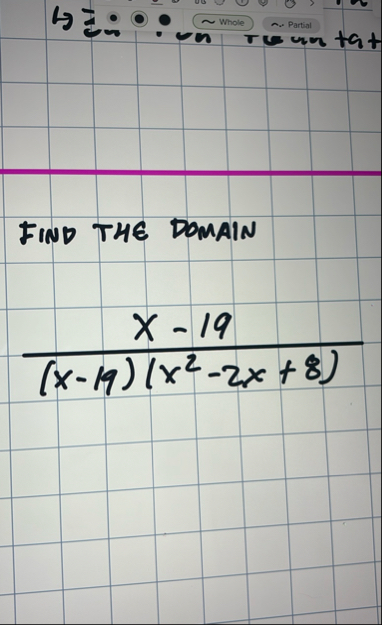 Whole Partial
FIND THE DOMAIN
x - 19
(x-19)(x²-2x+8)